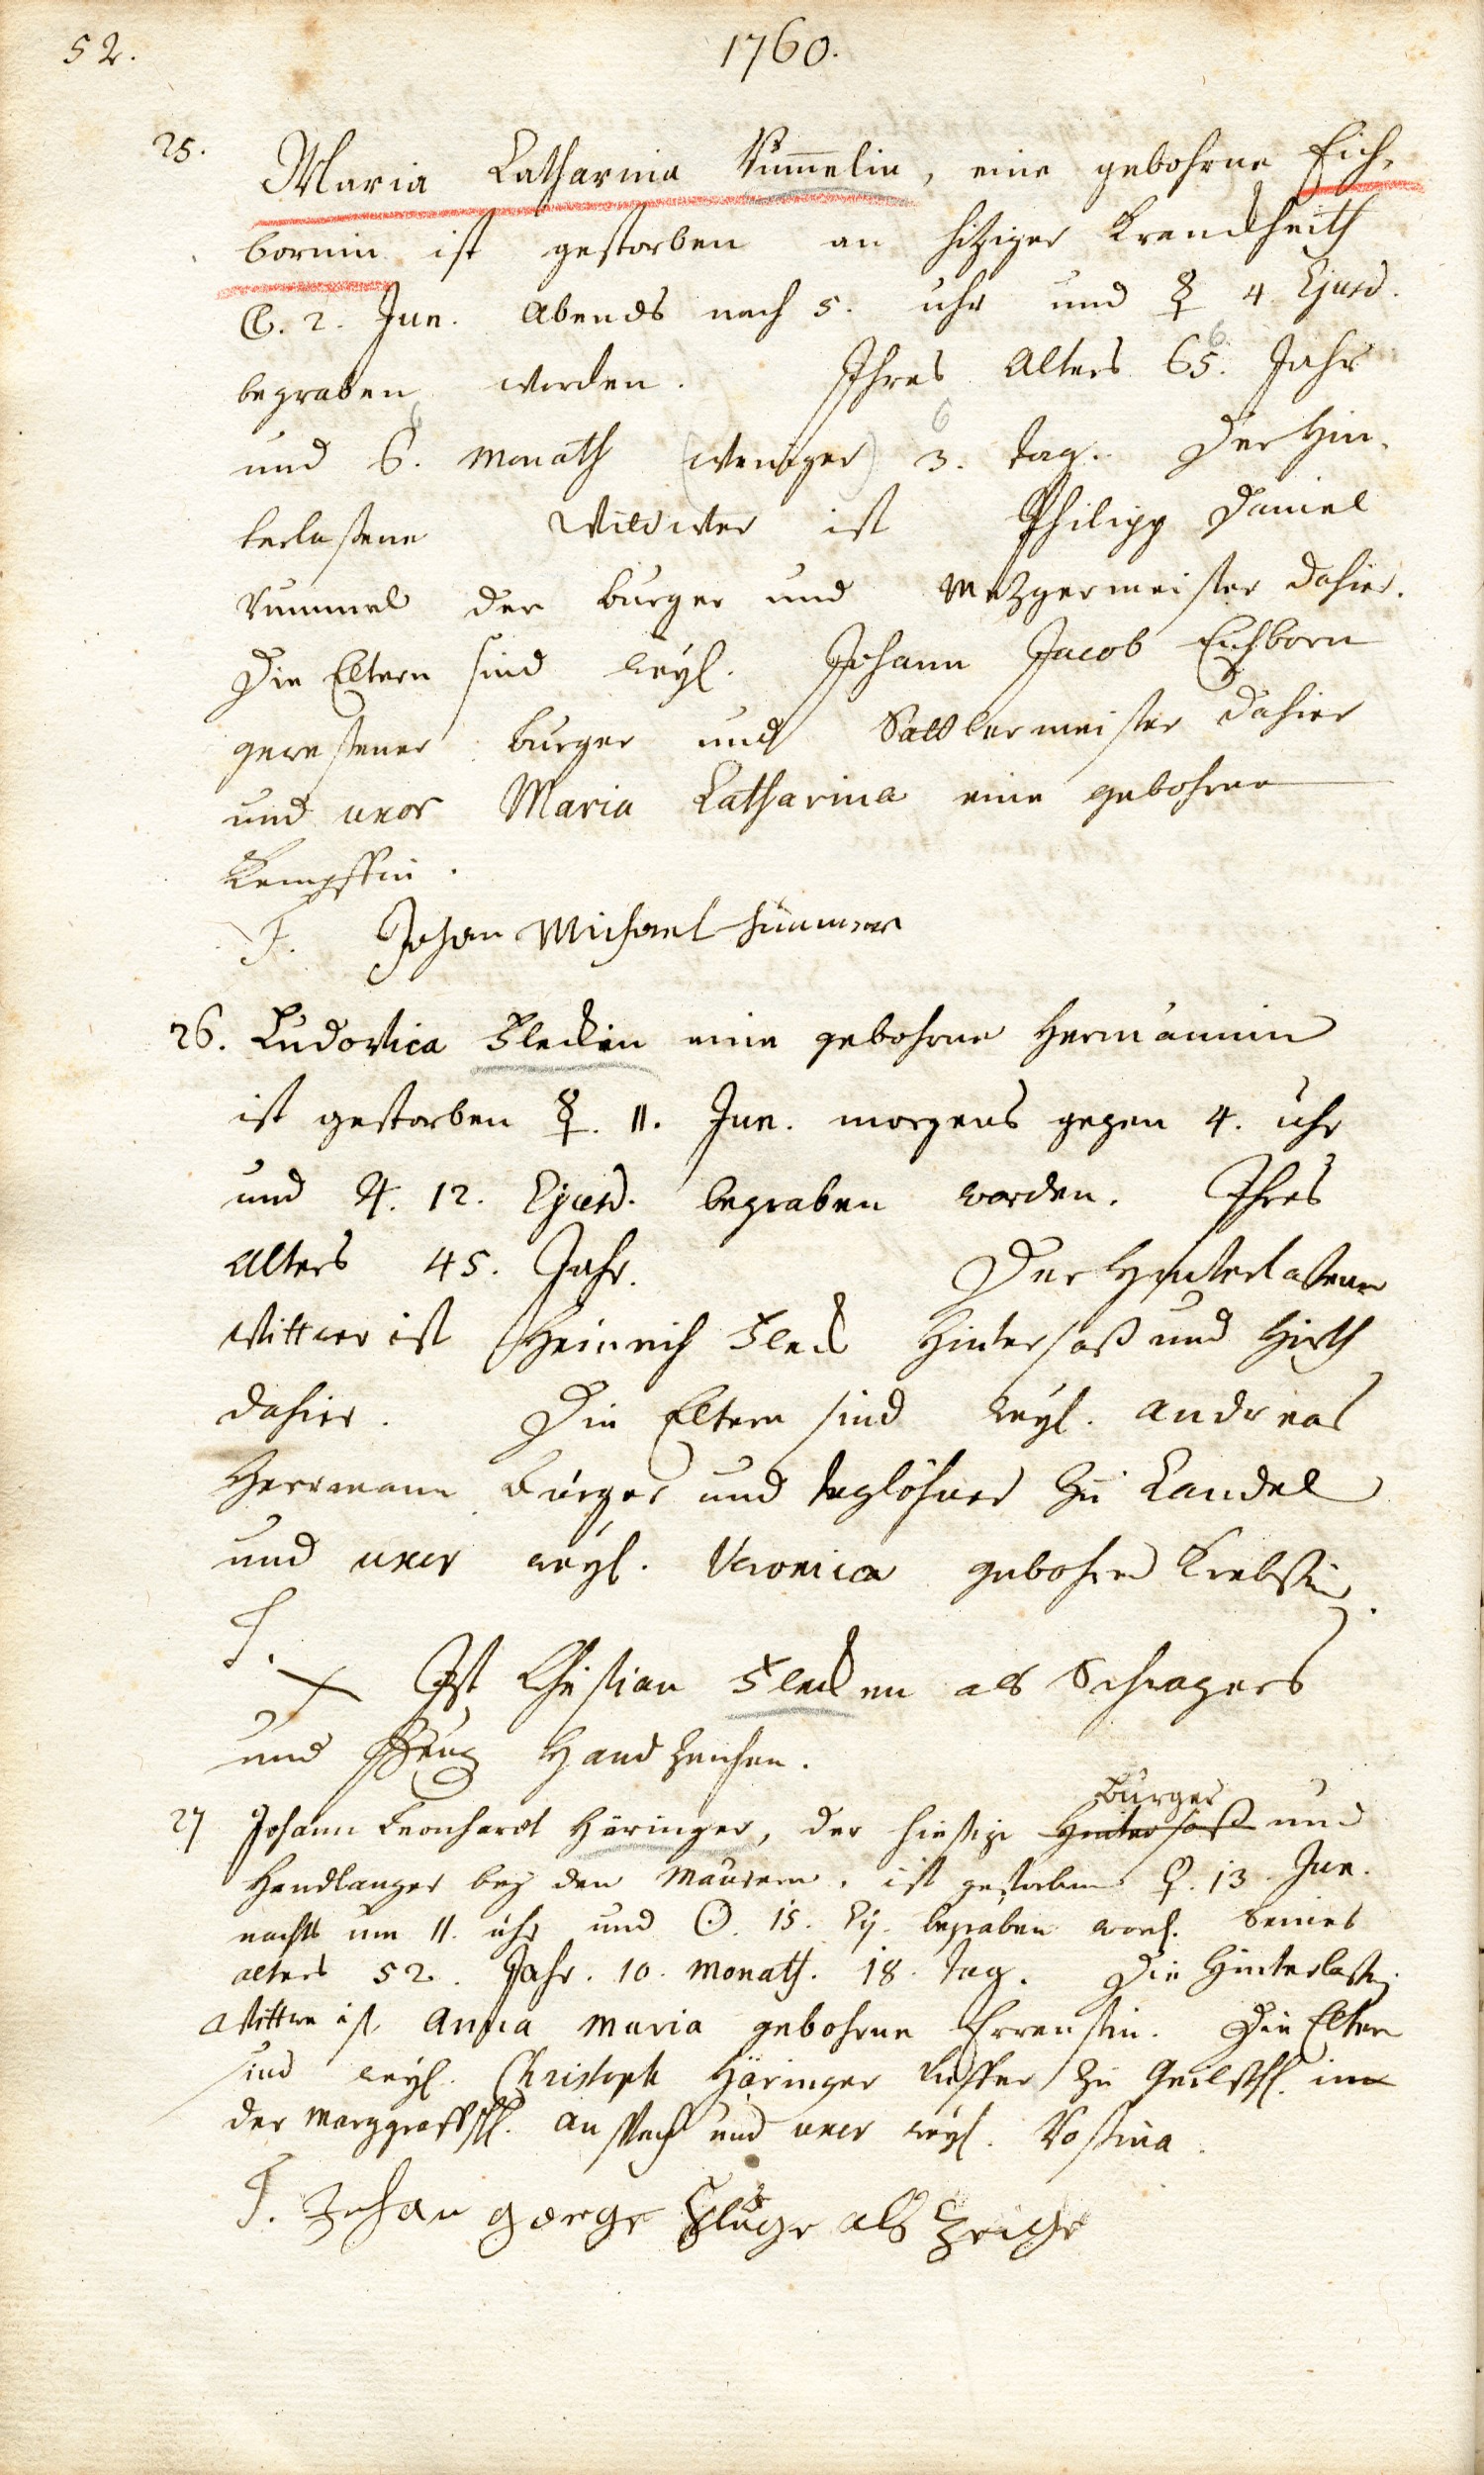 52.
1760.
25. Maria Catharina Rum̄elin, eine gebohrne Eich-
bornin ist gestorben an hitziger Kranckheith
☾. 2. Jun. Abends nach 5. uhr und ☿ 4 Ejusd.
begraben worden. Ihres Alters 65. Jahr
und 6. Monath (weniger) 3. tag. Der Hin-
terlaßene Wittwer ist Philipp Daniel
Rummel der burger und Metzgermeister dahier.
Die Eltern sind weyl. Johann Jacob Eichborn
gewesener burger und Sattlermeister dahier
und uxor Maria Catharina eine gebohrne
Kempffin.
T. Johan Michael
26. Ludovica Fleckin eine gebohrne Hermännin
ist gestorben ☿. 11. Jun. morgens gegen 4. uhr
und ♃. 12. Ejusd. begraben worden. Ihres
Alters 45. Jahr. Der Hinterlaßene
Wittwer ist Heinrich Fleck Hintersaß und Hirth
dahier. Die Eltern sind weyl. Andreas
Herrmann Burger und taglöhner zu Candel
und uxor weyl. Veronica gebohrne Krebsin.
T.
X Ist Christian Flecken als Schwagers
und Zeug Handzeichen.
27 Johann Leonhardt Häringer, der hiesige Hintersaß Burger und
Handlanger bey den Maurern, ist gestorben ♀. 13. Jun.
nachts um 11. uhr und ☉. 15. Ej. begraben word. Seines
alters 52. Jahr. 10. Monath. 18. tag. Die Hinterlaßene
Wittwe ist Anna Maria gebohrne. Die Eltern
sind weyl. Christoph Häringer zu in
der Marggraffsch. Anspach und uxor weyl. Rosina.
T. Johan george Kluge als Zeige